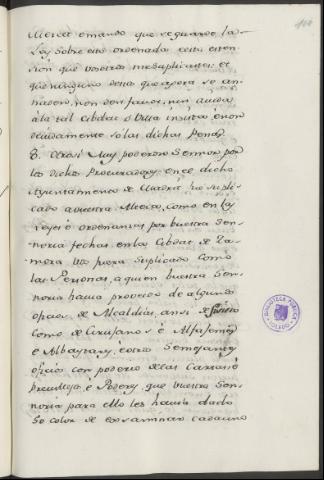 Merced emando que se guarde la
Ley sobre esto ordenada con la exten-
sion que vosotros me suplicastes: et
que ninguno desto que agora se an-
nadiere, non den favor, nin ayuda
à la tal Cibdat ò Villa insista è non
devidamente sò las dichas penas
8. Otrosi Muy poderoso Sennor por
los dichos Procuradores en el dicho
Ayuntamiento de Madrid fue supli-
cado a vuestra Merced, como en las
leyes è ordenanzas por vuestra Sen-
noria fechas en la Cibdat de Za-
mora vos fuera suplicado como
las Personas, a quien vuestra Sen-
noria havia proveido de algunos
oficios de Alcaldias, ansi de fisico
como de Cirujanos è Alfajemes
è Albaytares, è otros semejantes
oficios con poderio de las Cartas è
Previllejos è Poderes que vuestra Sen-
noria para ello les havia dado
so color de examinar cada uno
BIBLIOTECA PUBLICA
TOLEDO